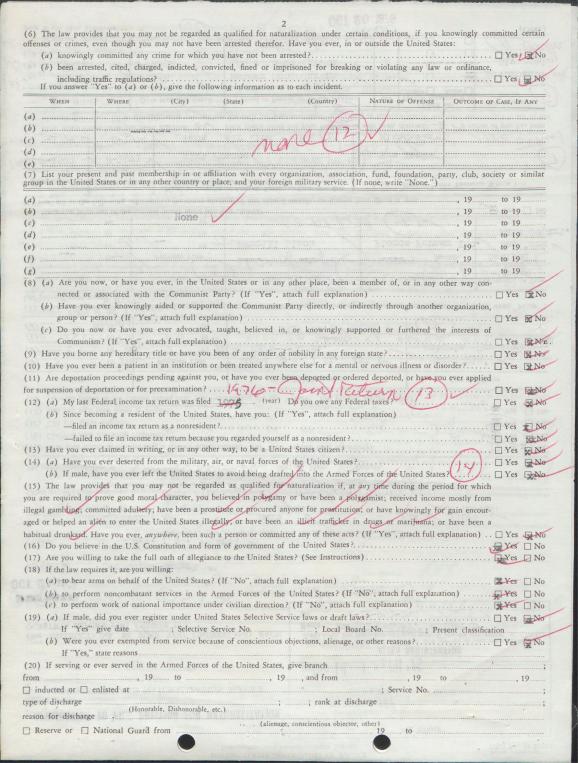 2
(6) The law provides that you may not be regarded as qualified for naturalization under certain conditions, if you knowingly committed certain
offenses or crimes, even though you may not have been arrested therefor. Have you ever, in or outside the United States:
(a) knowingly committed any crime for which you have not been arrested? ☐ Yes ☒ No
(b) been arrested, cited, charged, indicted, convicted, fined or imprisoned for breaking or violating any law or ordinance,
including traffic regulations? ☐ Yes ☒ No
If you answer "Yes" to (a) or (b), give the following information as to each incident.
WHEN WHERE (City) (State) (Country) NATURE OF OFFENSE OUTCOME OF CASE, IF ANY
(a)
(b)
none 12
(c)
(d)
(e)
(7) List your present and past membership in or affiliation with every organization, association, fund, foundation, party, club, society or similar
group in the United States or in any other country or place, and your foreign military service. (If none, write "None.")
(a) , 19 to 19
(b) , 19 to 19
(c) None , 19 to 19
(d) , 19 to 19
(e) , 19 to 19
(f) , 19 to 19
(g) , 19 to 19
(8) (a) Are you now, or have you ever, in the United States or in any other place, been a member of, or in any other way con-
nected or associated with the Communist Party? (If "Yes", attach full explanation) ☐ Yes ☒ No
(b) Have you ever knowingly aided or supported the Communist Party directly, or indirectly through another organization,
group or person? (If "Yes", attach full explanation) ☐ Yes ☒ No
(c) Do you now or have you ever advocated, taught, believed in, or knowingly supported or furthered the interests of
Communism? (If "Yes", attach full explanation) ☐ Yes ☒ No
(9) Have you borne any hereditary title or have you been of any order of nobility in any foreign state? ☐ Yes ☒ No
(10) Have you ever been a patient in an institution or been treated anywhere else for a mental or nervous illness or disorder? ☐ Yes ☒ No
(11) Are deportation proceedings pending against you, or have you ever been deported or ordered deported, or have you ever applied
for suspension of deportation or for preexamination? ☐ Yes ☒ No
1976- Return 13
(12) (a) My last Federal income tax return was filed 1975 (year) Do you owe any Federal taxes? ☐ Yes ☒ No
(b) Since becoming a resident of the United States, have you: (If "Yes", attach full explanation)
—filed an income tax return as a nonresident? ☐ Yes ☒ No
—failed to file an income tax return because you regarded yourself as a nonresident? ☐ Yes ☒ No
(13) Have you ever claimed in writing, or in any other way, to be a United States citizen? ☐ Yes ☒ No
(14) (a) Have you ever deserted from the military, air, or naval forces of the United States? ☐ Yes ☒ No
(b) If male, have you ever left the United States to avoid being drafted into the Armed Forces of the United States? 14 ☐ Yes ☒ No
(15) The law provides that you may not be regarded as qualified for naturalization if, at any time during the period for which
you are required to prove good moral character, you believed in polygamy or have been a polygamist; received income mostly from
illegal gambling, committed adultery; have been a prostitute or procured anyone for prostitution; or have knowingly for gain encour-
aged or helped an alien to enter the United States illegally; or have been an illicit trafficker in drugs or marihuana; or have been a
habitual drunkard. Have you ever, anywhere, been such a person or committed any of these acts? (If "Yes", attach full explanation) ☐ Yes ☒ No
(16) Do you believe in the U.S. Constitution and form of government of the United States? ☒ Yes ☐ No
(17) Are you willing to take the full oath of allegiance to the United States? (See Instructions) ☒ Yes ☐ No
(18) If the law requires it, are you willing:
(a) to bear arms on behalf of the United States? (If "No", attach full explanation) ☒ Yes ☐ No
(b) to perform noncombatant services in the Armed Forces of the United States? (If "No", attach full explanation) ☒ Yes ☐ No
(c) to perform work of national importance under civilian direction? (If "No", attach full explanation) ☒ Yes ☐ No
(19) (a) If male, did you ever register under United States Selective Service laws or draft laws? ☐ Yes ☒ No
If "Yes" give date ; Selective Service No. ; Local Board No. ; Present classification
(b) Were you ever exempted from service because of conscientious objections, alienage, or other reasons? ☐ Yes ☒ No
If "Yes," state reasons
(20) If serving or ever served in the Armed Forces of the United States, give branch ;
from , 19 to , 19 , and from , 19 to , 19
☐ inducted or ☐ enlisted at ; Service No. ;
type of discharge ; rank at discharge ;
(Honorable, Dishonorable, etc.)
reason for discharge ;
(alienage, conscientious objector, other)
☐ Reserve or ☐ National Guard from 19 to